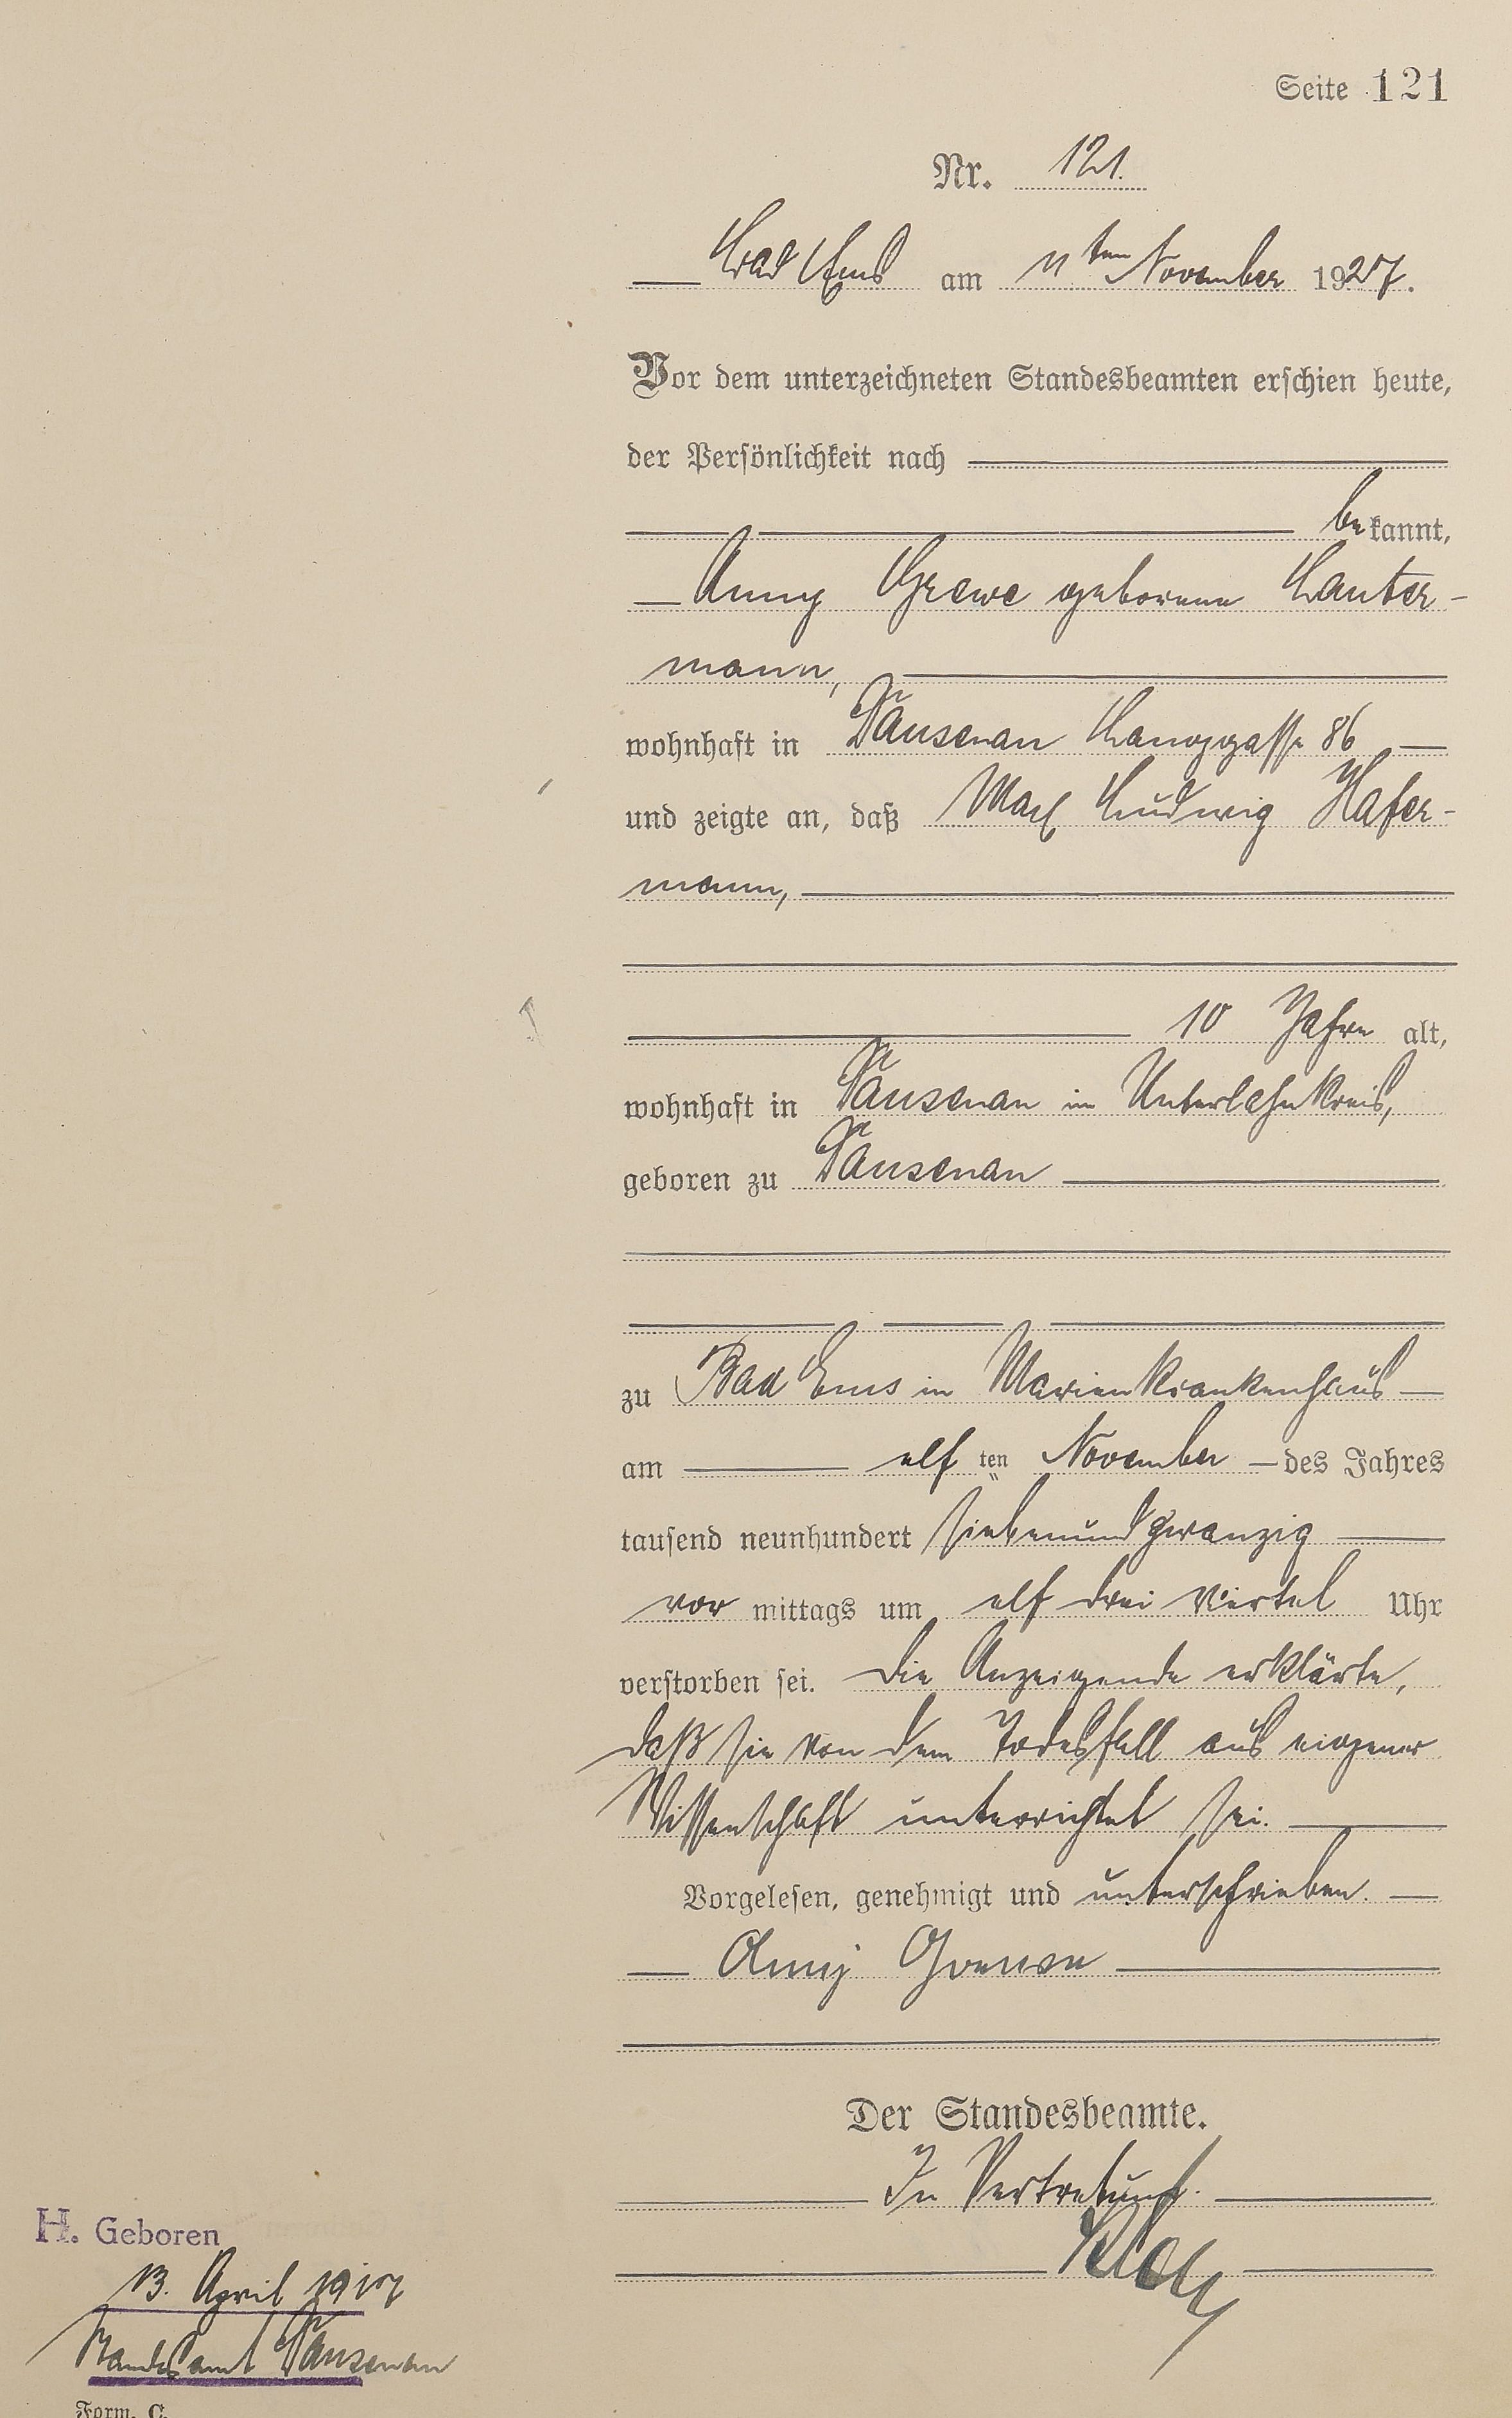 Seite 121
Nr. 121.
Bad Ems am 11ten November 1927.
Vor dem unterzeichneten Standesbeamten erschien heute,
der Persönlichkeit nach
bekannt,
Anny Grewe geborene Lauter-
mann,
wohnhaft in Dausenau Langgasse 86
und zeigte an, daß Max Ludwig Hafer-
mann,
10 Jahre alt,
wohnhaft in Dausenau im Unterlahnkreis,
geboren zu Dausenau
zu Bad Ems im Marienkrankenhaus
am elf ten November des Jahres
tausend neunhundert siebenundzwanzig
vor mittags um elf drei viertel Uhr
verstorben sei. Die Anzeigende erklärte,
daß sie von dem Todesfall aus eigener
Wissenschaft unterrichtet sei.
Vorgelesen, genehmigt und unterschrieben.
Anny Grewe
Der Standesbeamte.
In Vertretung.
H. Geboren
13. April 1917
Standesamt Dausenau
Form. C.